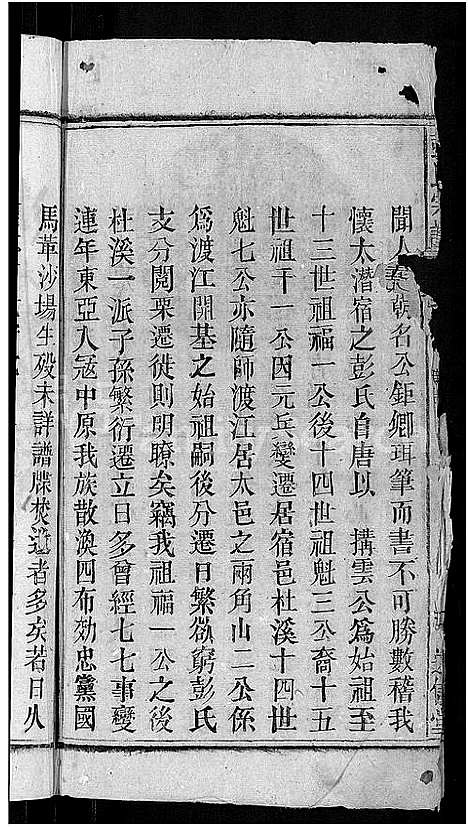 聞人奏朝名公鉅卿珥筆而書不可勝數稽我
懷太潛宿之彭氏自唐以 搆雲公爲始祖至
十三世祖福一公後十四世祖魁三公裔十五
世祖千一公因元兵變遷居宿邑杜溪十四世
魁七公亦隨師渡江居太邑之雨角山二公係
爲渡江開基之始祖嗣後分遷日繁欲窮彭氏
支分閱栗遷徙則明瞭矣竊我祖福一公之後
杜溪一派子孫繁衍遷立日多曾經七七事變
連年東亞入冦中原我族散渙四布効忠黨國
馬革沙場生歿未詳譜牒焚遺者多矣若日久